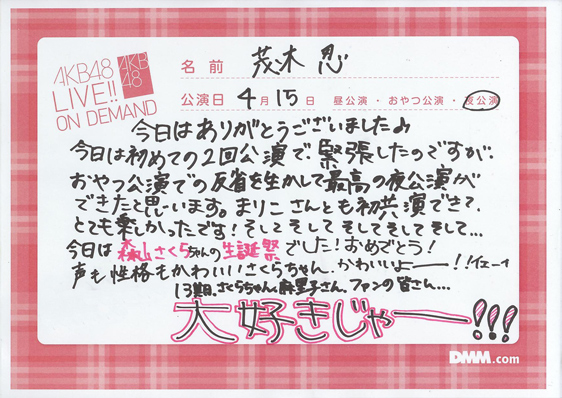 AKB48
LIVE!!
ON DEMAND
AKB
48
名前 茂木 忍
公演日 4月15日 昼公演・おやつ公演・夜公演
今日はありがとうございました♪
今日は初めての2回公演で緊張したのですが、
おやつ公演での反省を生かして最高の夜公演が
できたと思います。まりこさんとも初共演できて、
とても楽しかったです!そしてそしてそしてそしてそして...
今日は森山さくらちゃんの生誕祭でした!おめでとう!
声も性格もかわいいさくらちゃん、かわいいよー!!イエーイ
13期、さくらちゃん、麻里子さん、ファンの皆さん...
大好きじゃー!!!
DMM.com